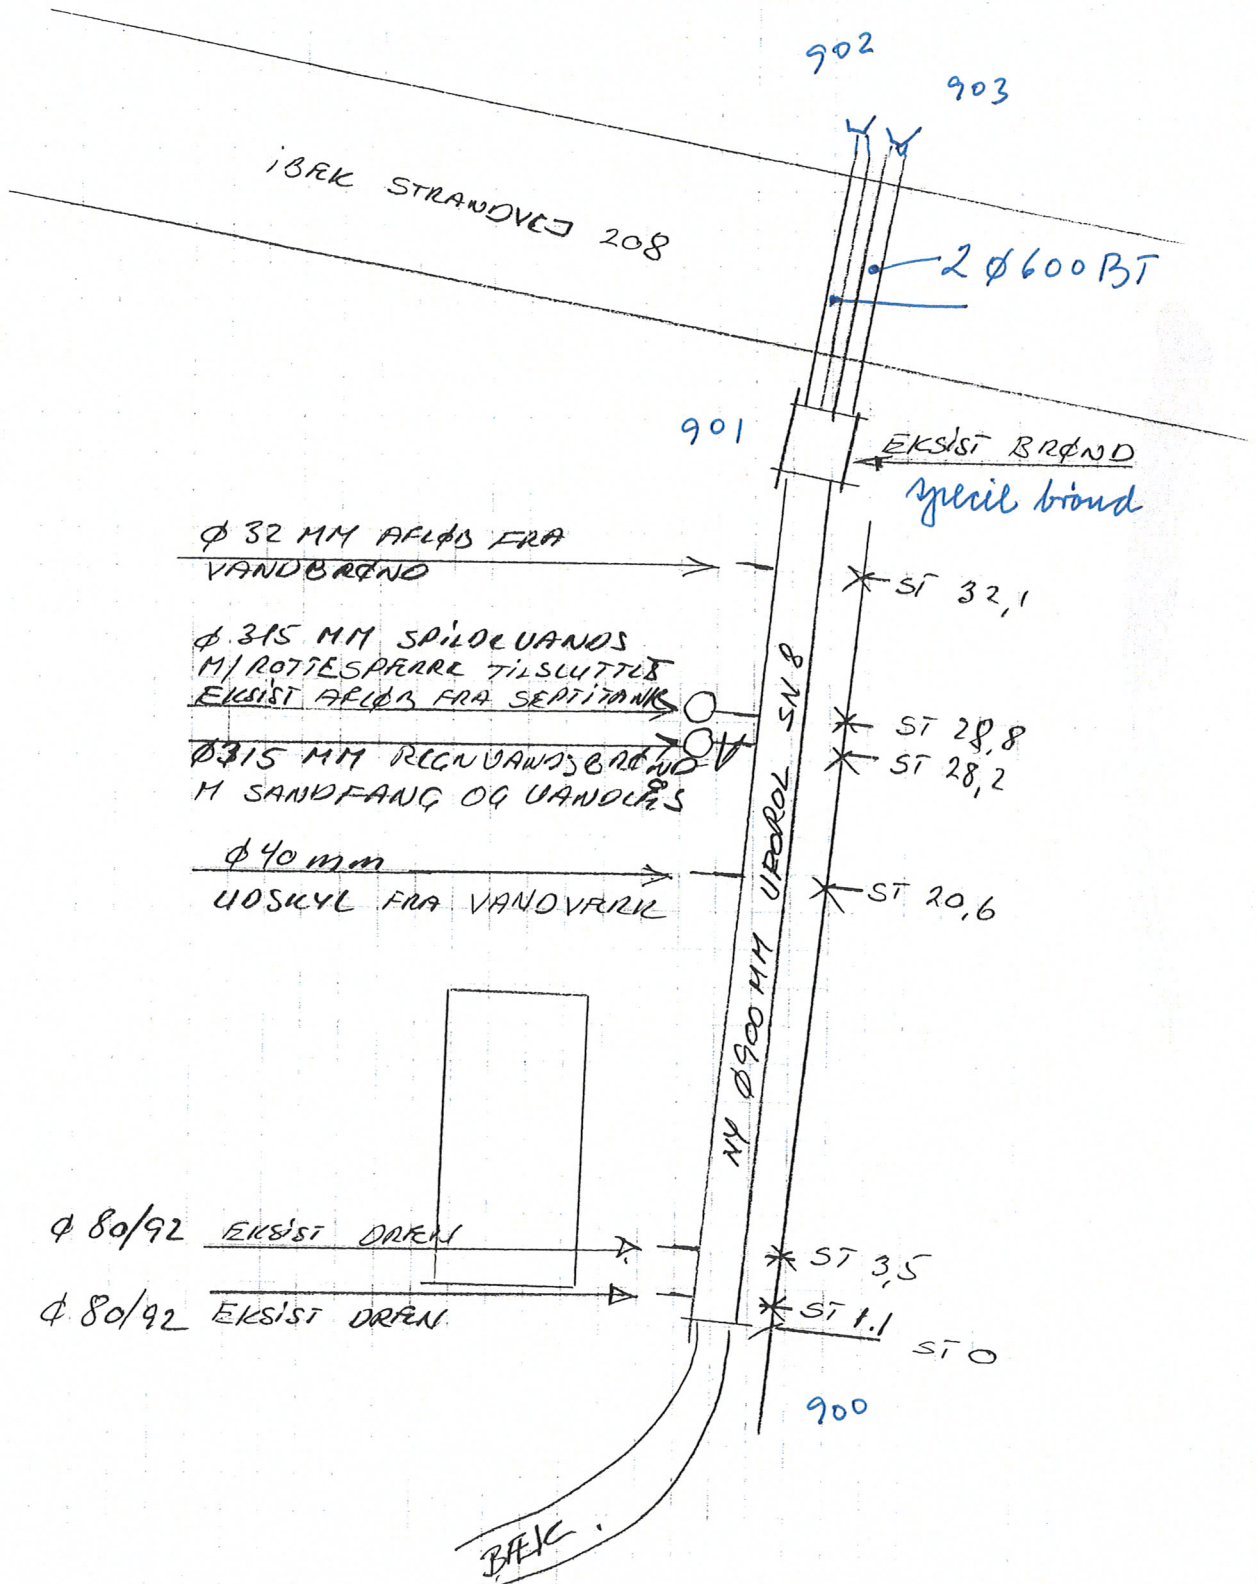 902
903
IBÆK STRANDVEJ 208
2 Ø600 BT
901
EKSIST BRØND
speciel brønd
Ø 32 MM AFLØB FRA
VANDBRØND
ST 32,1
Ø 315 MM SPILDEVANDS
M/ROTTESPÆRRE TILSLUTTES
EKSIST AFLØB FRA SEPTITANK
ST 28,8
Ø315 MM REGNVANDSBRØND
M SANDFANG OG VANDLÅS
ST 28,2
Ø 40 mm
UDSKYL FRA VANDVÆRK
ST 20,6
NY Ø900 MM UPOROL SN 8
Ø 80/92 EKSIST DRÆN
ST 3,5
Ø 80/92 EKSIST DRÆN
ST 1.1
ST 0
900
BÆK.